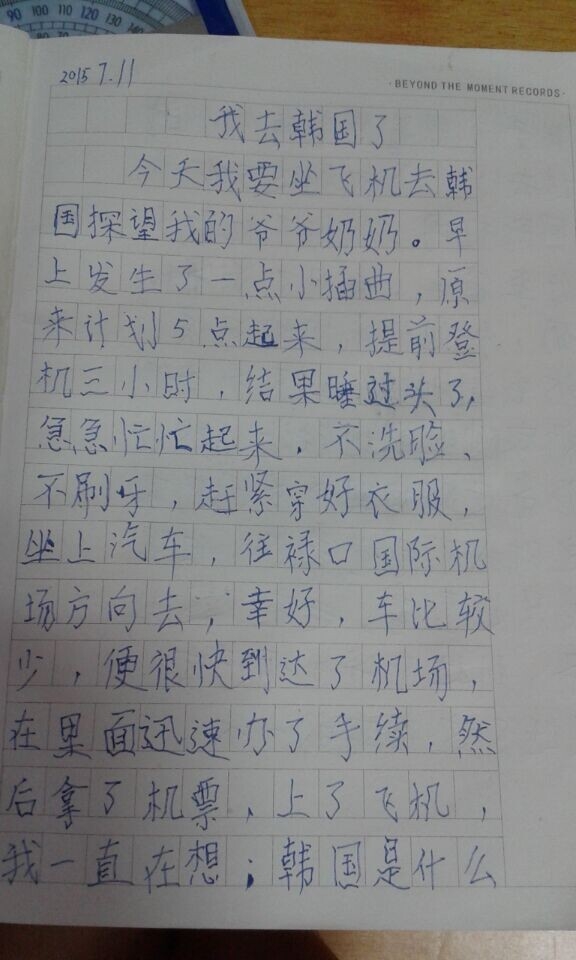 110 120 130
2015 7.11
·BEYOND THE MOMENT RECORDS·
我去韩国了
今天我要坐飞机去韩
国探望我的爷爷奶奶。早
上发生了一点小插曲，原
来计划5点起来，提前登
机三小时，结果睡过头了，
急急忙忙起来，不洗脸、
不刷牙，赶紧穿好衣服，
坐上汽车，往禄口国际机
场方向去，幸好，车比较
少，便很快到达了机场，
在里面迅速办了手续，然
后拿了机票，上了飞机，
我一直在想；韩国是什么